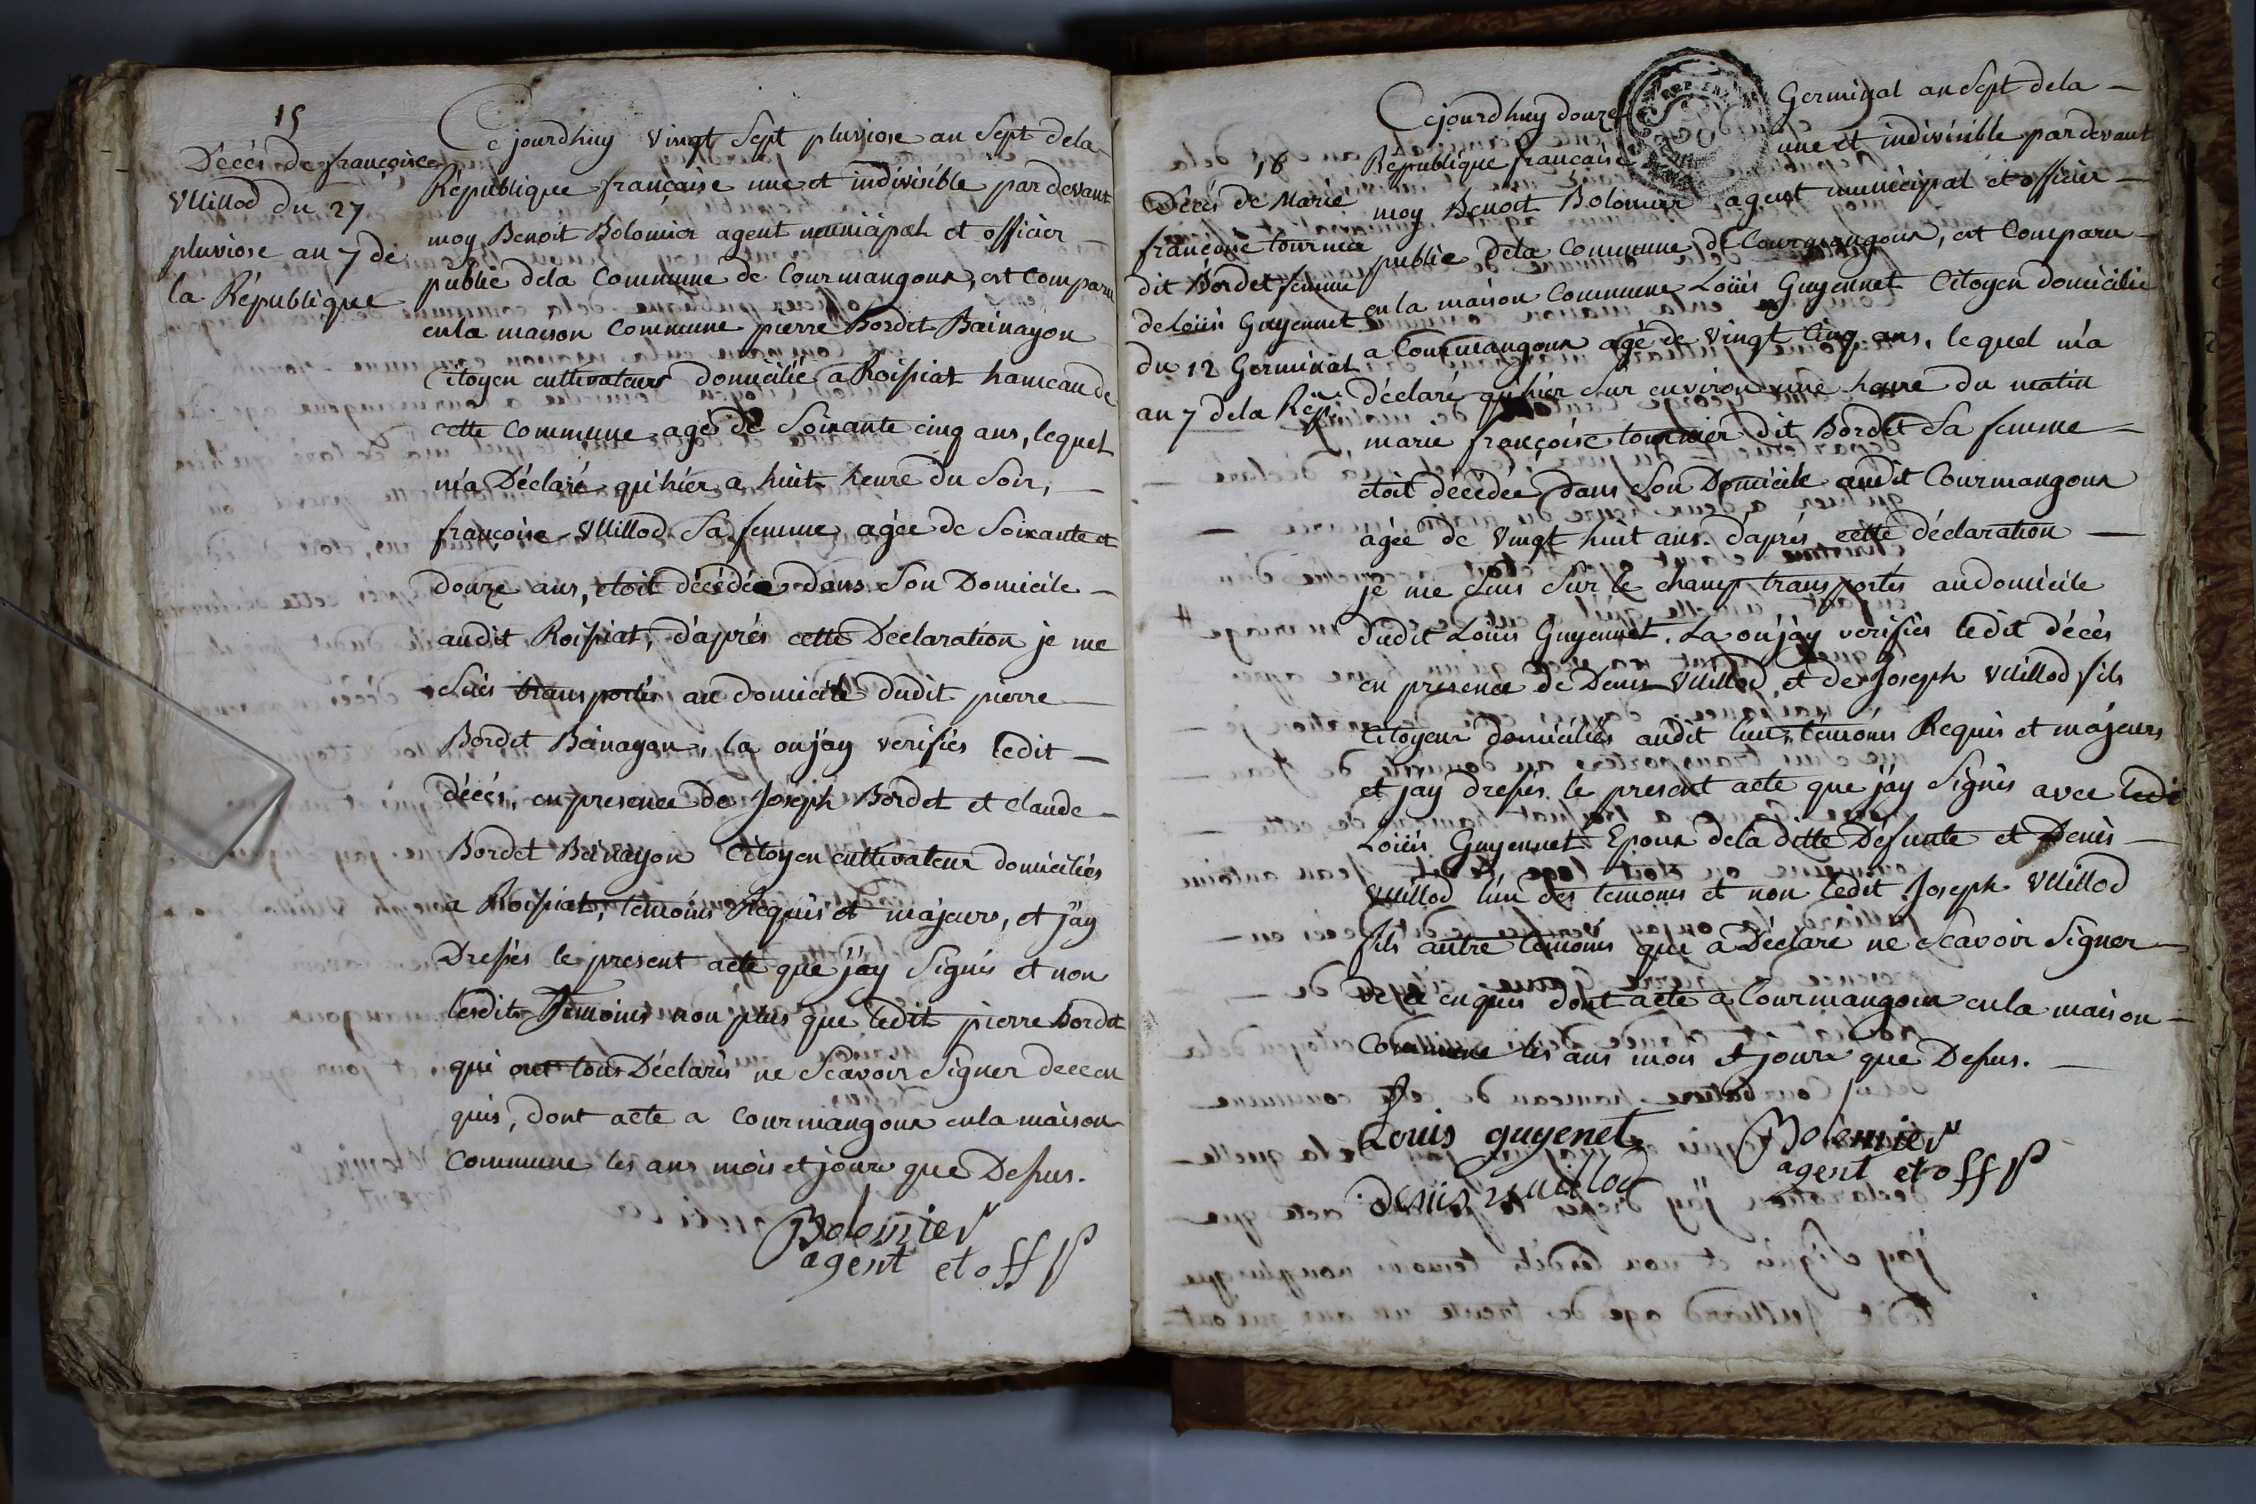 15
Décés de françoise
Vuillod du 27
pluviose an 7 de
la République
Ce jourdhuy vingt Sept pluviose an Sept dela
République française une et indivisible par devant
moy Benoit Bolomier agent municipal et officier
public dela Commune de Courmangoux, est Comparu
enla maison Commune pierre Bordet Bainayon
Citoyen cultivateur domicilié a Roissiat hameau de
cette Commune agés de Soixante cinq ans, lequel
m'a Déclaré qu'hiér a huit heure du Soir,
françoise Vuillod Sa femme agée de Soixante et
douze ans, étoit décédée dans Son Domicile
audit Roissiat, d'aprés cette Declaration je me
Suis transportés au domicile dudit pierre
Bordet Bainayon, la ou j'ay verifiés ledit
décés, en presence de Joseph Bordet et Claude
Bordet Bainayon Citoyen cultivateur domiciliés
a Roissiat, temoins Requis et majeurs, et j'ay
Dressés le present acte que j'ay Signés et non
lesdits Temoins non plus que ledit pierre Bordet
qui ont tous Déclarés ne Scavoir Signer de ce en
quis, dont acte a Courmangoux enla maison
Commune les ans mois et jours que Dessus.
Bolomier
agent et off p
18
Décés de Marie
françoise tournier
dit Bordet femme
de Loüis Guyennet
du 12 Germinal
an 7 dela Rép.
Cejourdhuy douze Germinal an Sept dela
République française une et indivisible par devant
moy Benoit Bolomier agent municipal et officier
public dela Commune de Courmangoux, est Comparu
enla maison Commune Loüis Guyennet Citoyen domicilié
a Courmangoux agé de vingt Cinq ans, le quel m'a
déclaré qu'hiér Sur environ une heure du matin
marie françoise tournier dit Bordet Sa femme
étoit décédée dans Son Domicile audit Courmangoux
agée de vingt huit ans d'aprés cette déclaration
je me Suis Sur le champ transportés au domicile
dudit Louis Guyennet. La ou j'ay verifiés ledit décés
en presence de Denis Vuillod, et de Joseph Vuillod fils
Citoyens domiciliés audit lieu, témoins Requis et majeurs
et j'ay dressés le present acte que j'ay Signés avec ledit
Loüis Guyennet Epoux dela ditte Défunte et Denis
Vuillod l'un des temoins et non ledit Joseph Vuillod
fils autre témoins qui a Déclare ne Scavoir Signer
de ce enquis dont acte a Courmangoux enla maison
Commune les ans mois et jours que Dessus.
Louis guyenet
Bolomier
agent et off p
denis vuillod